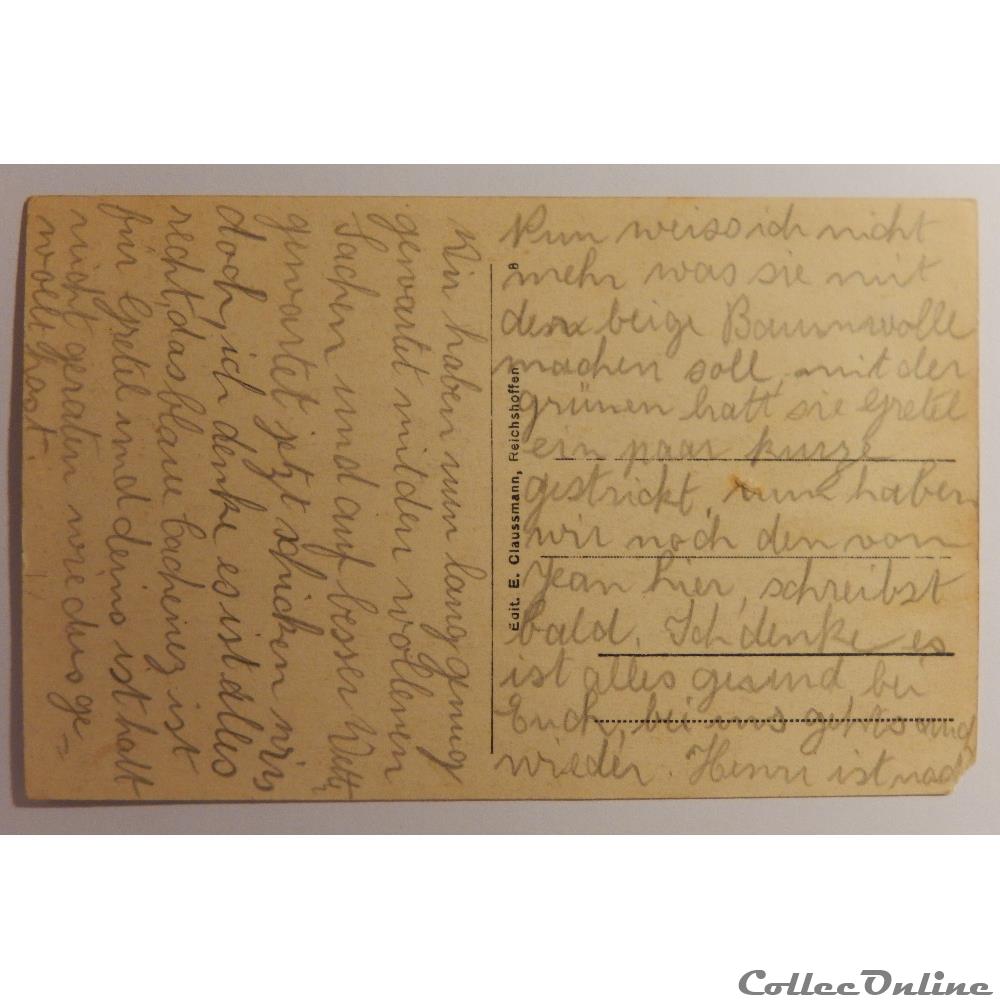 Wir haben nun lang genug
gewartet mit den wollenen
Sachen und auf besser Wett,
gewartet jetzt schicken wirs
doch, ich denke es ist alles
recht, das blaue cachenez ist
für Gretel und deins ist halt
nicht geraten wie du's ge=
wollt hast.
Édit. E. Claussmann, Reichshoffen
8
Nun weiss ich nicht
mehr was sie mit
der beige Baumwolle
machen soll, mit der
grünen hatt sie Gretel
ein paar kurze
gestrickt, nun haben
wir noch den vom
Jean hier, schreibst
bald. Ich denke es
ist alles gesund bei
Euch, bei uns geht's auch
wieder. Henri ist nach
CollecOnline